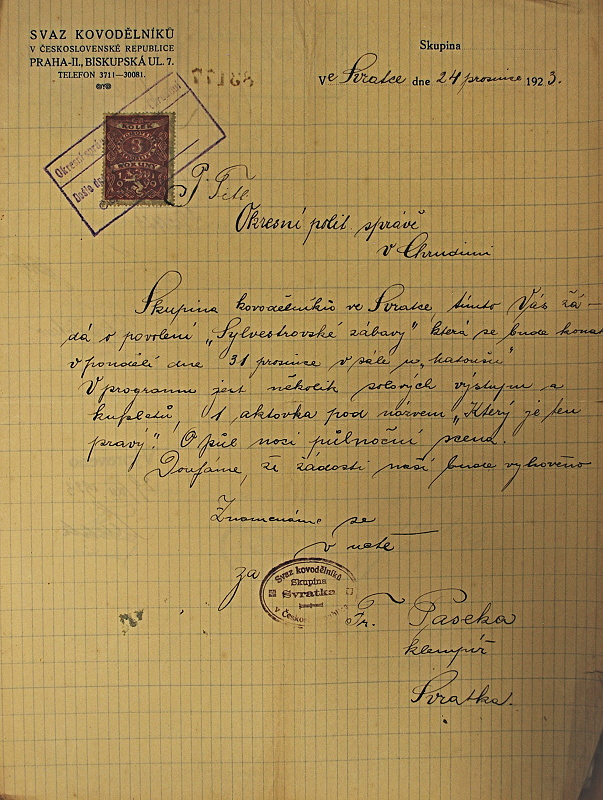 SVAZ KOVODĚLNÍKŮ
V ČESKOSLOVENSKÉ REPUBLICE
PRAHA-II., BISKUPSKÁ UL. 7.
TELEFON 3711—30081.
Skupina
Ve Svratce dne 24 prosince 1923.
83177
KOLEK
3
KORUNY
1920
Okresní
Došlo
P. Titl
Okresní polit. správě
v Chrudimi
Skupina kovodělníků ve Svratce tímto Vás žá-
dá o povolení „Sylvestrovské zábavy" která se bude konat
v pondělí dne 31 prosince v sále u „Matoušů"
V programu jest několik solových výstupu a
kupletů, 1 aktovka pod názvem „Který je ten
pravý". O půl noci půlnoční scena.
Doufáme, že žádosti naší bude vyhověno
Znamenáme se
v úctě
za
Svaz kovodělníků
Skupina
Svratka
v Česko
Fr. Paseka
klempíř
Svratka.